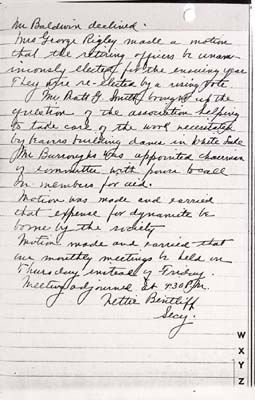 Mr Baldwin declined.
Mrs George Rigley made a motion
that the retiring officers be unan-
imously elected for the ensuing year
They were re-elected by a rising vote.
Mr Smith brought up the
question of the association helping
to take care of the work necessitated
by beavers building dams in White Lake
Mr Burroughs was appointed chairman
of committee with power to call
on members for aid.
Motion was made and carried
that expense for dynamite be
borne by the society
Motion made and carried that
our monthly meetings be held on
Thursday instead of Friday.
Meeting adjourned at 4:30 P.M.
Nettie Bentliff
Secy.
W
X
Y
Z